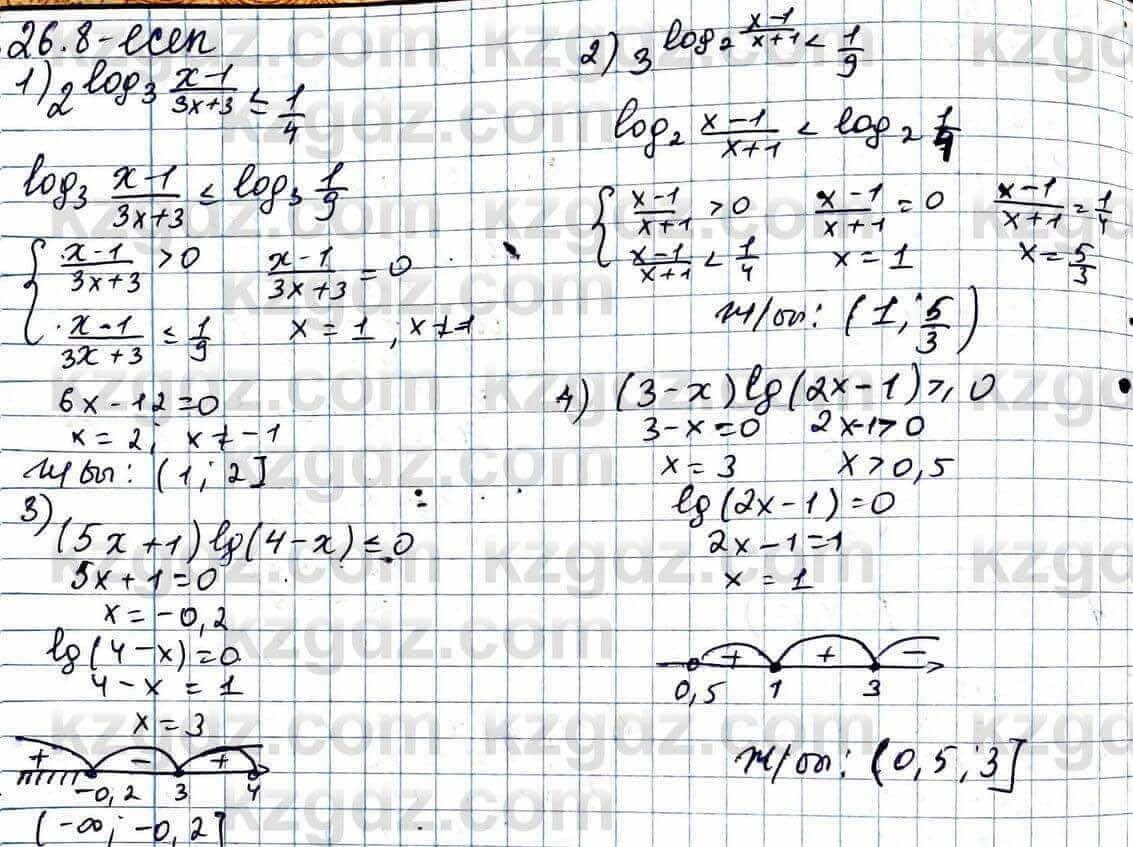 26.8-есеп
1) 2^{log_3 \frac{x-1}{3x+3}} ≤ \frac{1}{4}
log_3 \frac{x-1}{3x+3} ≤ log_3 \frac{1}{9}
{ \frac{x-1}{3x+3} > 0   \frac{x-1}{3x+3} = 0
\frac{x-1}{3x+3} ≤ \frac{1}{9}   x = 1 ; x ≠ -1
6x - 12 = 0
x = 2; x ≠ -1
Ж/бы: (1; 2]
3) (5x+1) lg(4-x) ≤ 0
5x+1=0
x = -0,2
lg(4-x)=0
4-x = 1
x = 3
+ - +
-0,2 3 4
(-∞; -0,2]
2) 3^{log_2 \frac{x-1}{x+1}} < \frac{1}{9}
log_2 \frac{x-1}{x+1} < log_2 \frac{1}{4}
{ \frac{x-1}{x+1} > 0   \frac{x-1}{x+1} = 0   \frac{x-1}{x+1} = \frac{1}{4}
\frac{x-1}{x+1} < \frac{1}{4}   x = 1   x = \frac{5}{3}
Ж/бы: (1; \frac{5}{3})
4) (3-x) lg(2x-1) ≥ 0
3-x=0   2x-1>0
x = 3   x > 0,5
lg(2x-1)=0
2x-1=1
x = 1
+ + -
0,5 1 3
Ж/бы: (0,5; 3]
kzgdz.com